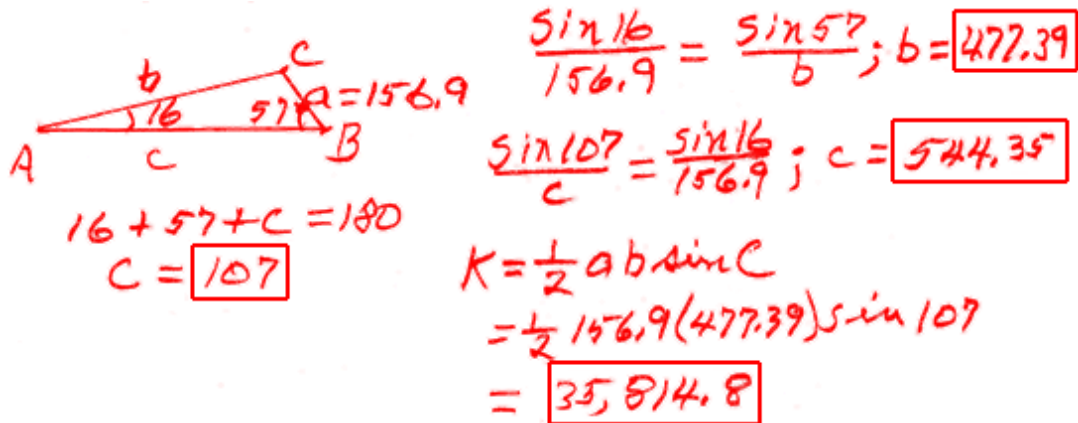 C
b
a = 156.9
16
57
A
c
B
16 + 57 + C = 180
C = 107
sin 16 / 156.9 = sin 57 / b ; b = 477.39
sin 107 / c = sin 16 / 156.9 ; c = 544.35
K = 1/2 ab sin C
= 1/2 156.9(477.39) sin 107
= 35,814.8